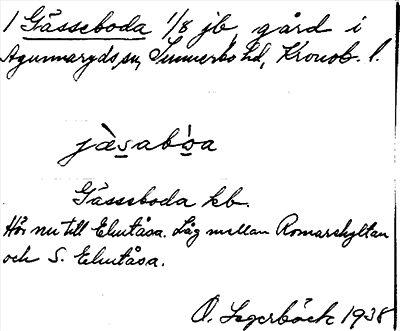 1 Gässeboda 1/8 jb, gård i
Agunnaryds sn, Sunnerbo hd, Kronob. l.
jæ̀saboa
Gässeboda kb.
Hör nu till Elmtåsa. Låg mellan Romarehyltan
och S. Elmtåsa.
O. Segerbäck 1938